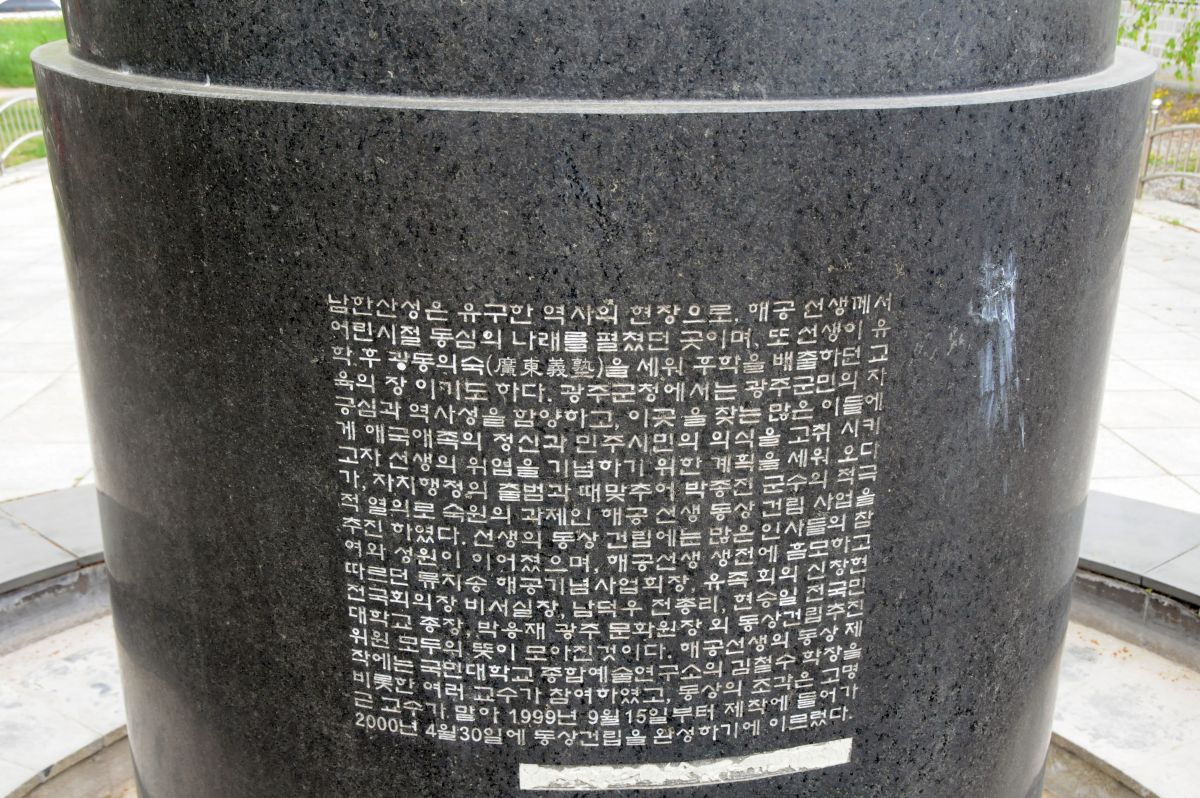 남한산성은 유구한 역사의 현장으로, 해공 선생께서
어린시절 동심의 나래를 펼쳤던 곳이며, 또선생이 유
학후 광동의숙(廣東義塾)을 세워 후학을 배출하던 교
육의 장 이기도 하다. 광주군청에서는 광주군민의 자
긍심과 역사성을 함양하고, 이곳을 찾는 많은 이들에
게 애국애족의 정신과 민주시민의 의식을 고취 시키
고자 선생의 위염을 기념하기 위한 계획을 세워 오다
가, 자치행정의 출범과 때맞추어 박종진 군수의 적극
적 열의로 숙원의 과제인 해공 선생 동상 건립 사업을
추진 하였다. 선생의 동상 건립에는 많은 인사들의 참
여와 성원이 이어졌으며, 해공선생 생전에 흠모하고
따르던 류지송 해공기념사업회장, 유족 회의 신창현
전국회의장 비서실장, 남덕우 전총리, 현승일 전국민
대학교 총장, 박응재 광주 문화원장 외 동상건립추진
위원 모두의 뜻이 모아진것이다. 해공선생의 동상 제
작에는 국민대학교 종합예술연구소의 김철수 학장을
비롯한 여러 교수가 참여하였고, 동상의 조각은 고명
근 교수가 맡아 1999년 9월15일부터 제작에 들어가
2000년 4월30일에 동상건립을 완성하기에 이르렀다.